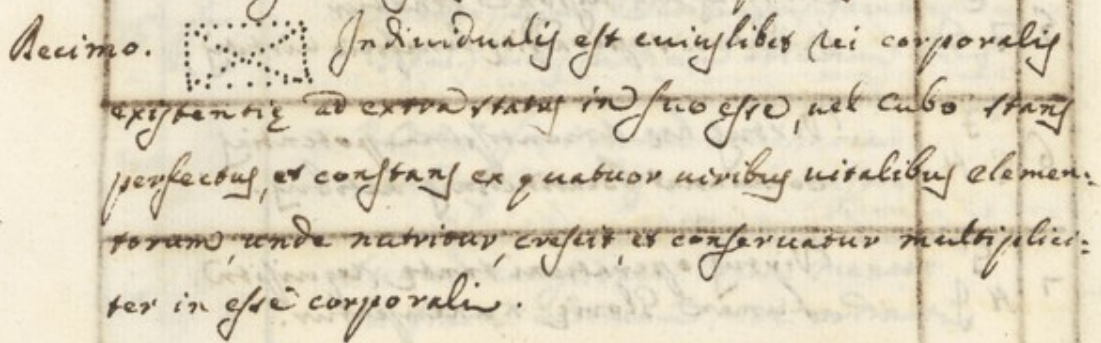 Decimo. Indiuidualis est cuiuslibet rei corporalis
existentię ad extra status in suo esse, uel Cubo stans
perfectus, et constans ex quatuor uiribus uitalibus elemen:
torum, unde nutritur, crescit, et conseruatur multiplici:
ter in esse corporali.